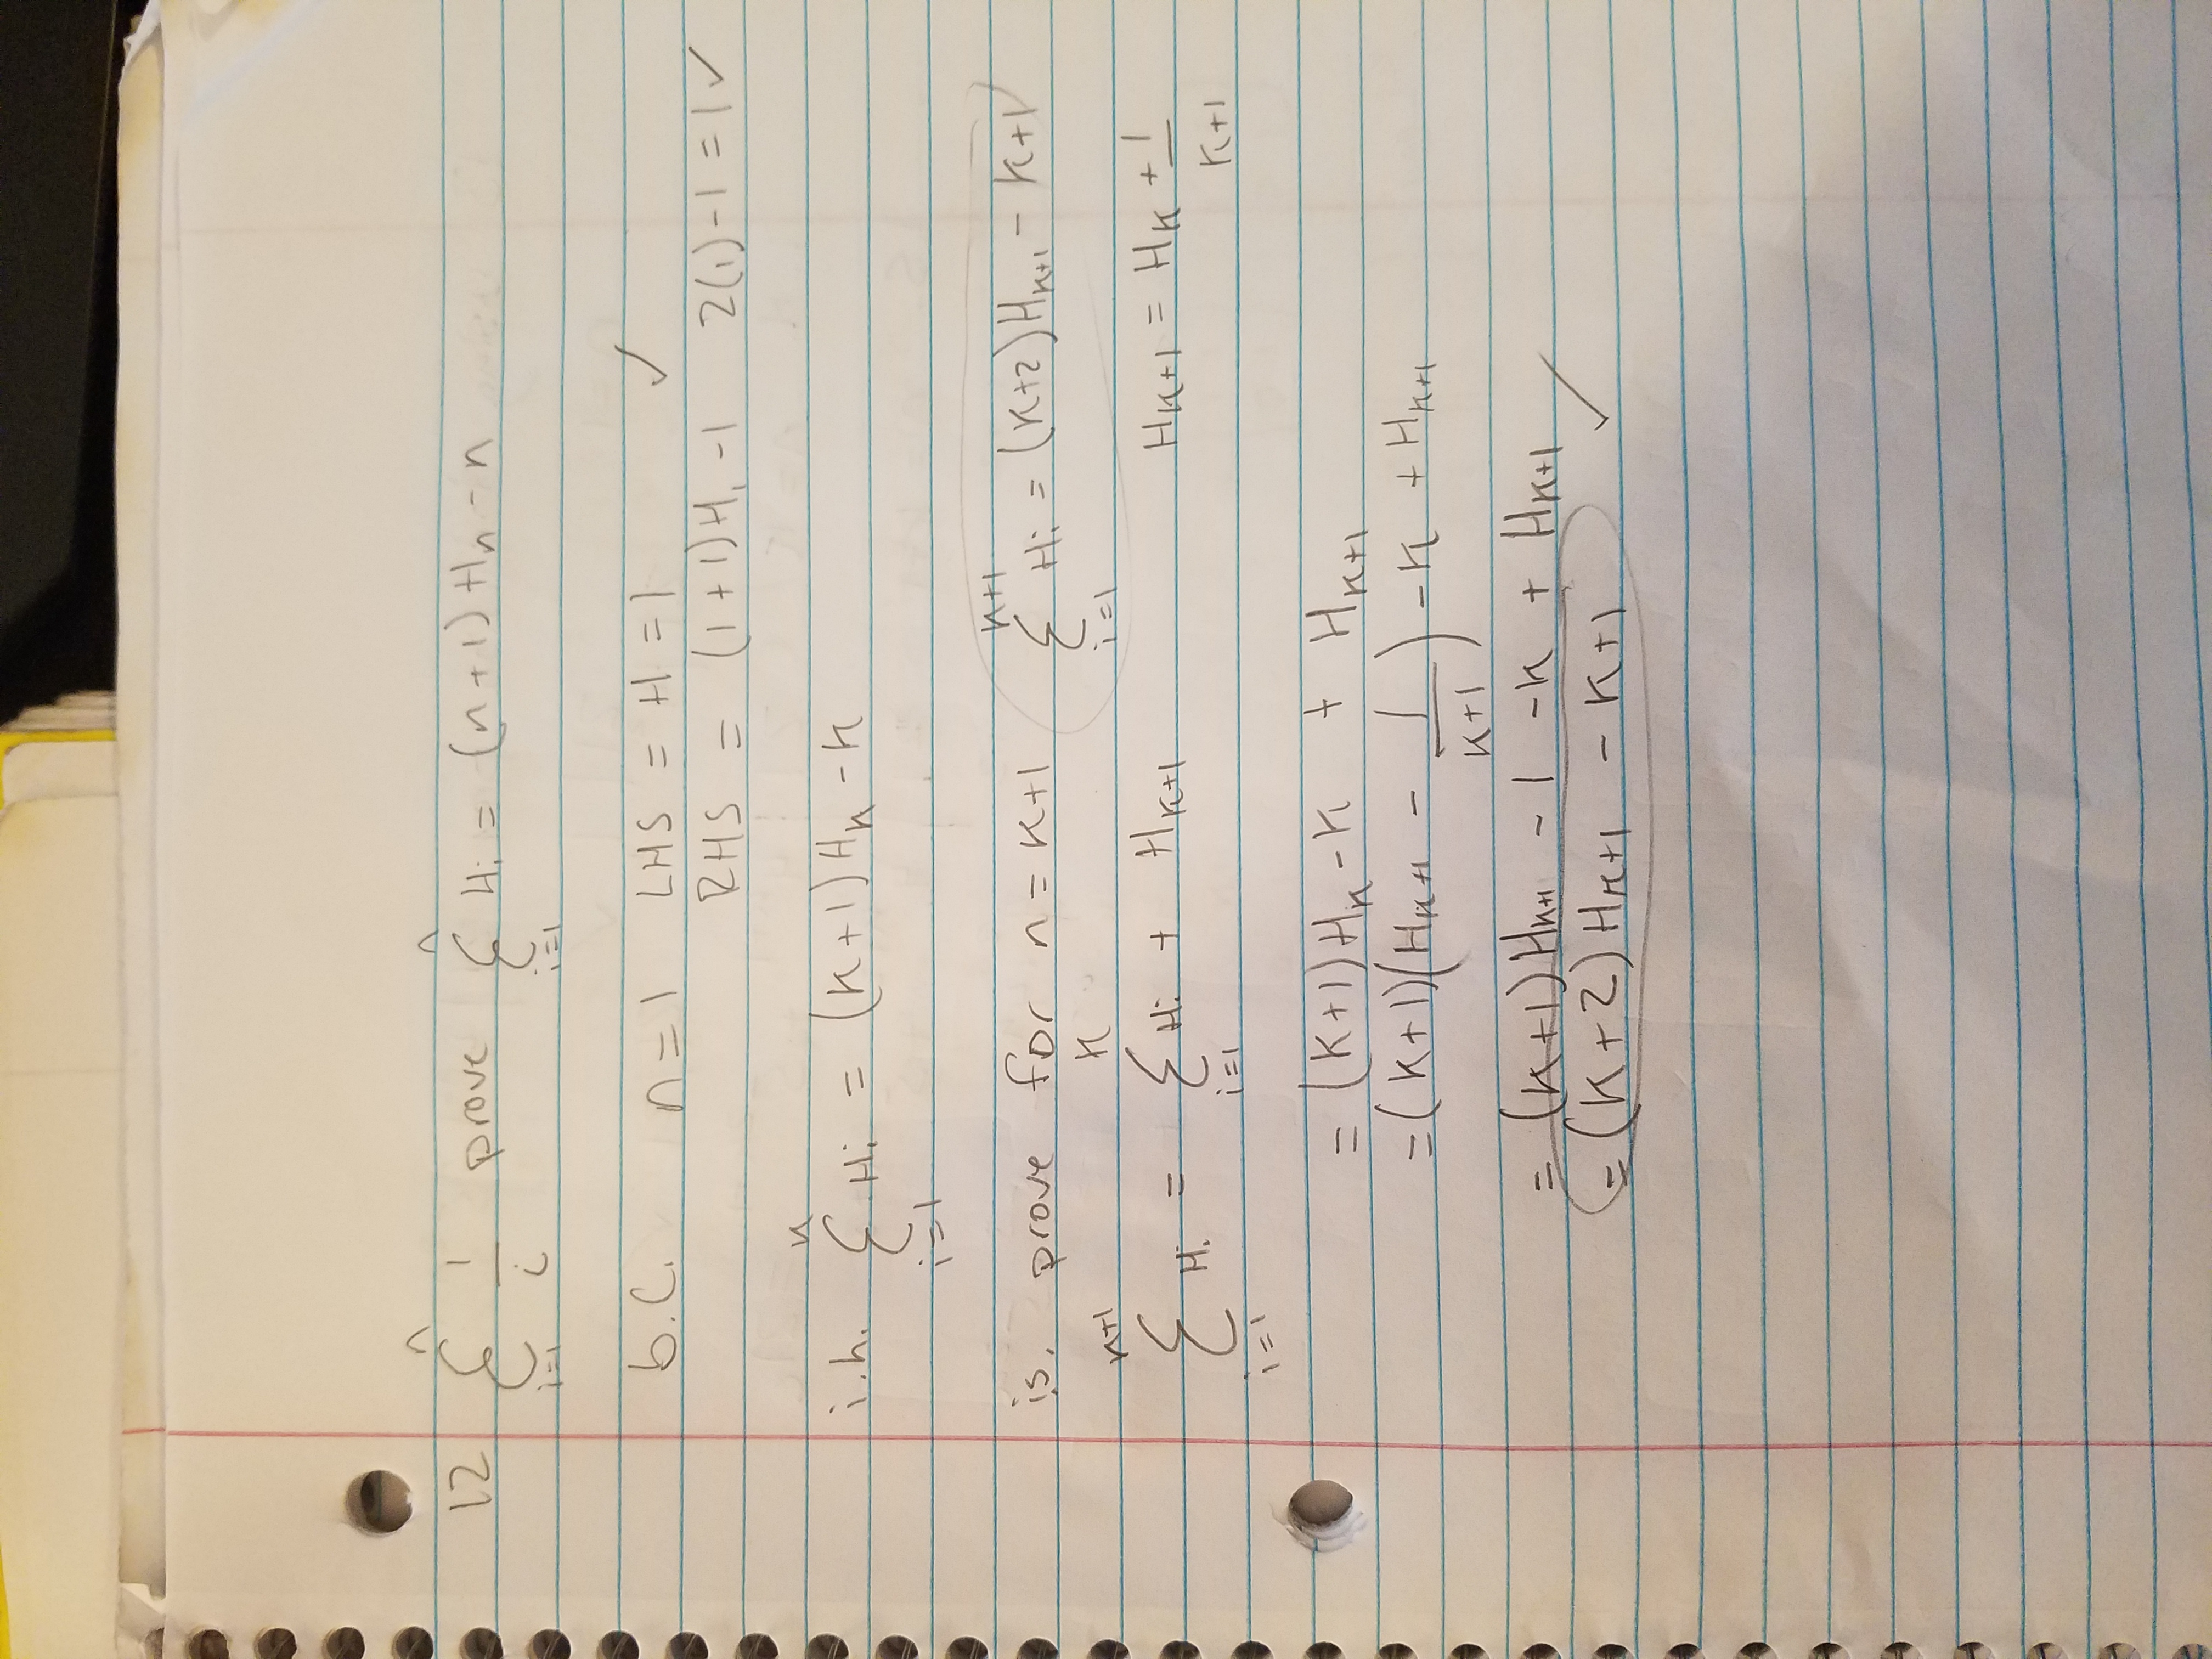 12 n Σ i=1 1/i prove n Σ i=1 Hi = (n+1) Hn - n
b.c. n=1 LHS = H = 1 ✓
RHS = (1+1)H1 - 1 2(1)-1 = 1 ✓
i.h. k Σ i=1 Hi = (k+1) Hk - k
is. prove for n = k+1 k+1 Σ i=1 Hi = (k+2) Hk+1 - k+1
k+1 Σ i=1 Hi = k Σ i=1 Hi + Hk+1 Hk+1 = Hk + 1/k+1
= (k+1) Hk - k + Hk+1
= (k+1)(Hk+1 - 1/k+1) - k + Hk+1
= (k+1) Hk+1 - 1 - k + Hk+1
= (k+2) Hk+1 - k+1 ✓